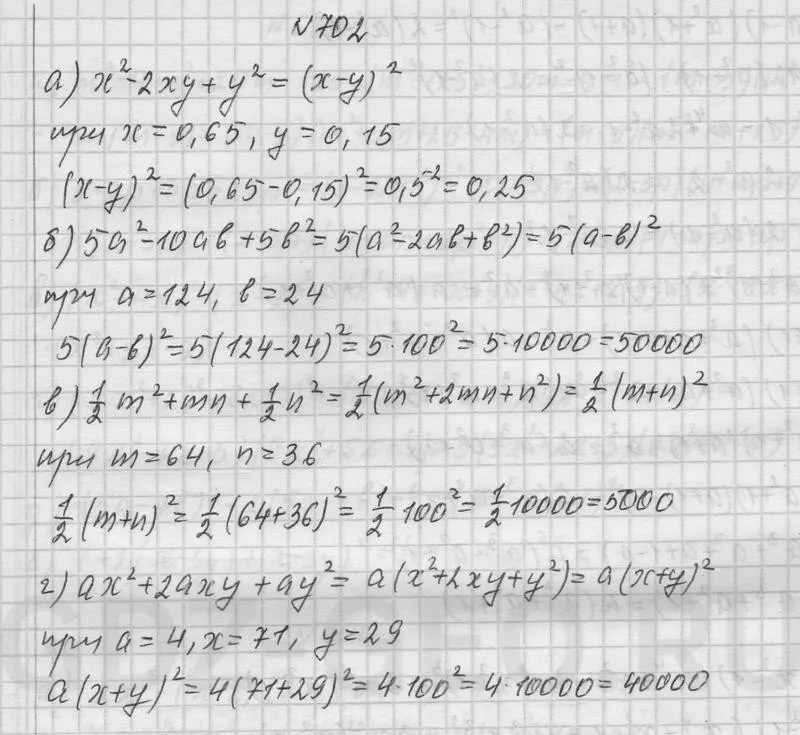 №702
а) x²-2xy+y²=(x-y)²
при x=0,65, y=0,15
(x-y)²=(0,65-0,15)²=0,5²=0,25
б) 5a²-10ab+5b²=5(a²-2ab+b²)=5(a-b)²
при a=124, b=24
5(a-b)²=5(124-24)²=5·100²=5·10000=50000
в) 1/2 m²+mn+1/2 n²=1/2(m²+2mn+n²)=1/2(m+n)²
при m=64, n=36
1/2(m+n)²=1/2(64+36)²=1/2 100²=1/2 10000=5000
г) ax²+2axy+ay²=a(x²+2xy+y²)=a(x+y)²
при a=4, x=71, y=29
a(x+y)²=4(71+29)²=4·100²=4·10000=40000